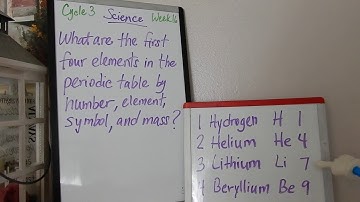 Cycle 3 Science Week 16
What are the first
four elements in the
periodic table by
number, element,
symbol, and mass?
1 Hydrogen H 1
2 Helium He 4
3 Lithium Li 7
4 Beryllium Be 9